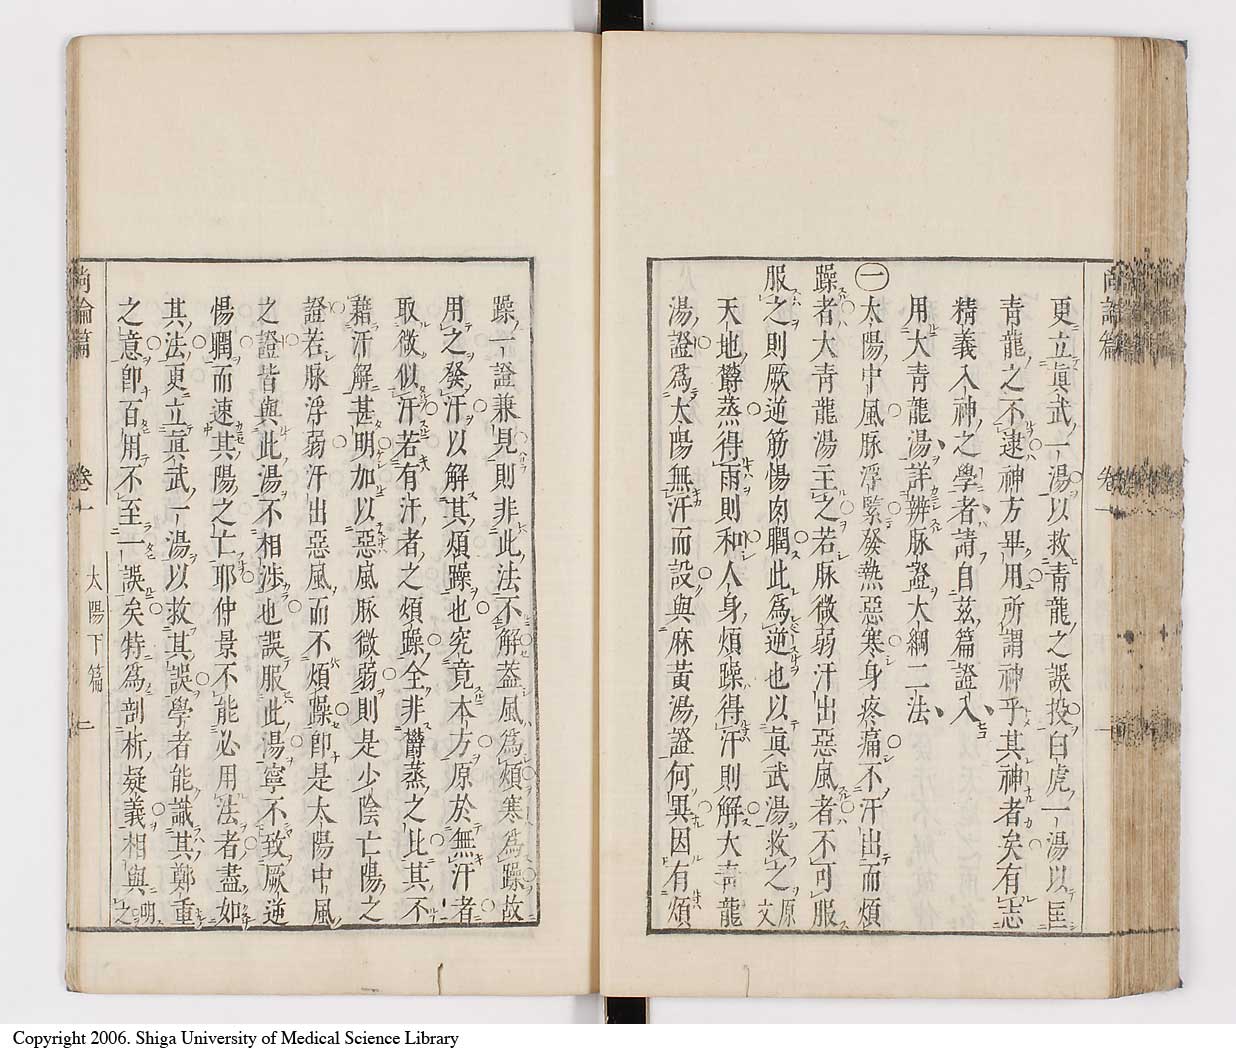 更立眞武一湯以救青龍之誤投白虎一湯以匡
青龍之不逮神方畢用所謂神乎其神者矣有志
精義入神之學者請自茲篇證入
用大青龍湯詳辨脉證大綱二法
㊀太陽中風脉浮緊發熱惡寒身疼痛不汗出而煩
躁者大青龍湯主之若脉微弱汗出惡風者不可服
服之則厥逆筋惕肉瞤此爲逆也以眞武湯救之原文
天地欝蒸得雨則和人身煩躁得汗則解大青龍
湯證爲太陽無汗而設與麻黃湯證何異因有煩
躁一證兼見則非此法不解葢風爲煩寒爲躁故
用之發汗以解其煩躁也究竟本方原於無汗者
取微似汗若有汗者之煩躁全非欝蒸之比其不
藉汗解甚明加以惡風脉微弱則是少陰亡陽之
證若脉浮弱汗出惡風而不煩躁卽是太陽中風
之證皆與此湯不相涉也誤服此湯寧不致厥逆
惕瞤而速其陽之亡耶仲景不能必用法者盡如
其法更立眞武一湯以救其誤學者能識其鄭重
之意卽百用不至一誤矣特爲剖析疑義相與明之
尚論篇 卷一 太陽下篇 二
Copyright 2006. Shiga University of Medical Science Library